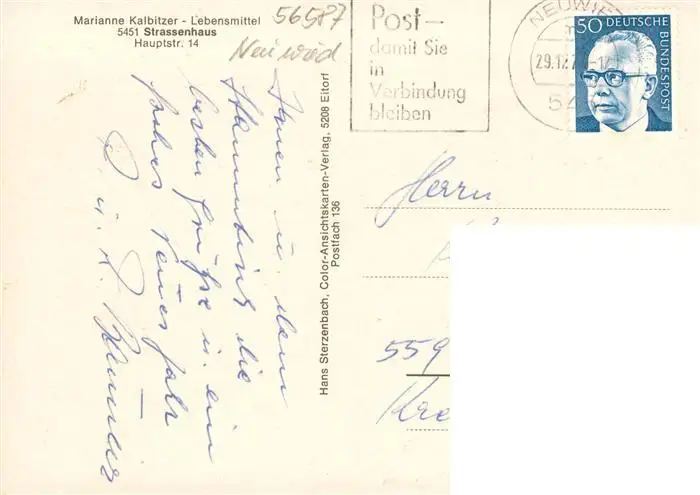 Marianne Kalbitzer - Lebensmittel
5451 Strassenhaus
Hauptstr. 14
56587
Neuwied
Post-
damit Sie
in
Verbindung
bleiben
NEUWIED
29.12.7
54
50 DEUTSCHE
BUNDESPOST
Ihnen u. dem
Stammtisch die
besten Grüße u. ein
frohes neues Jahr
Hans Sterzenbach, Color-Ansichtskarten-Verlag, 5208 Eitorf
Postfach 136
Herrn
559